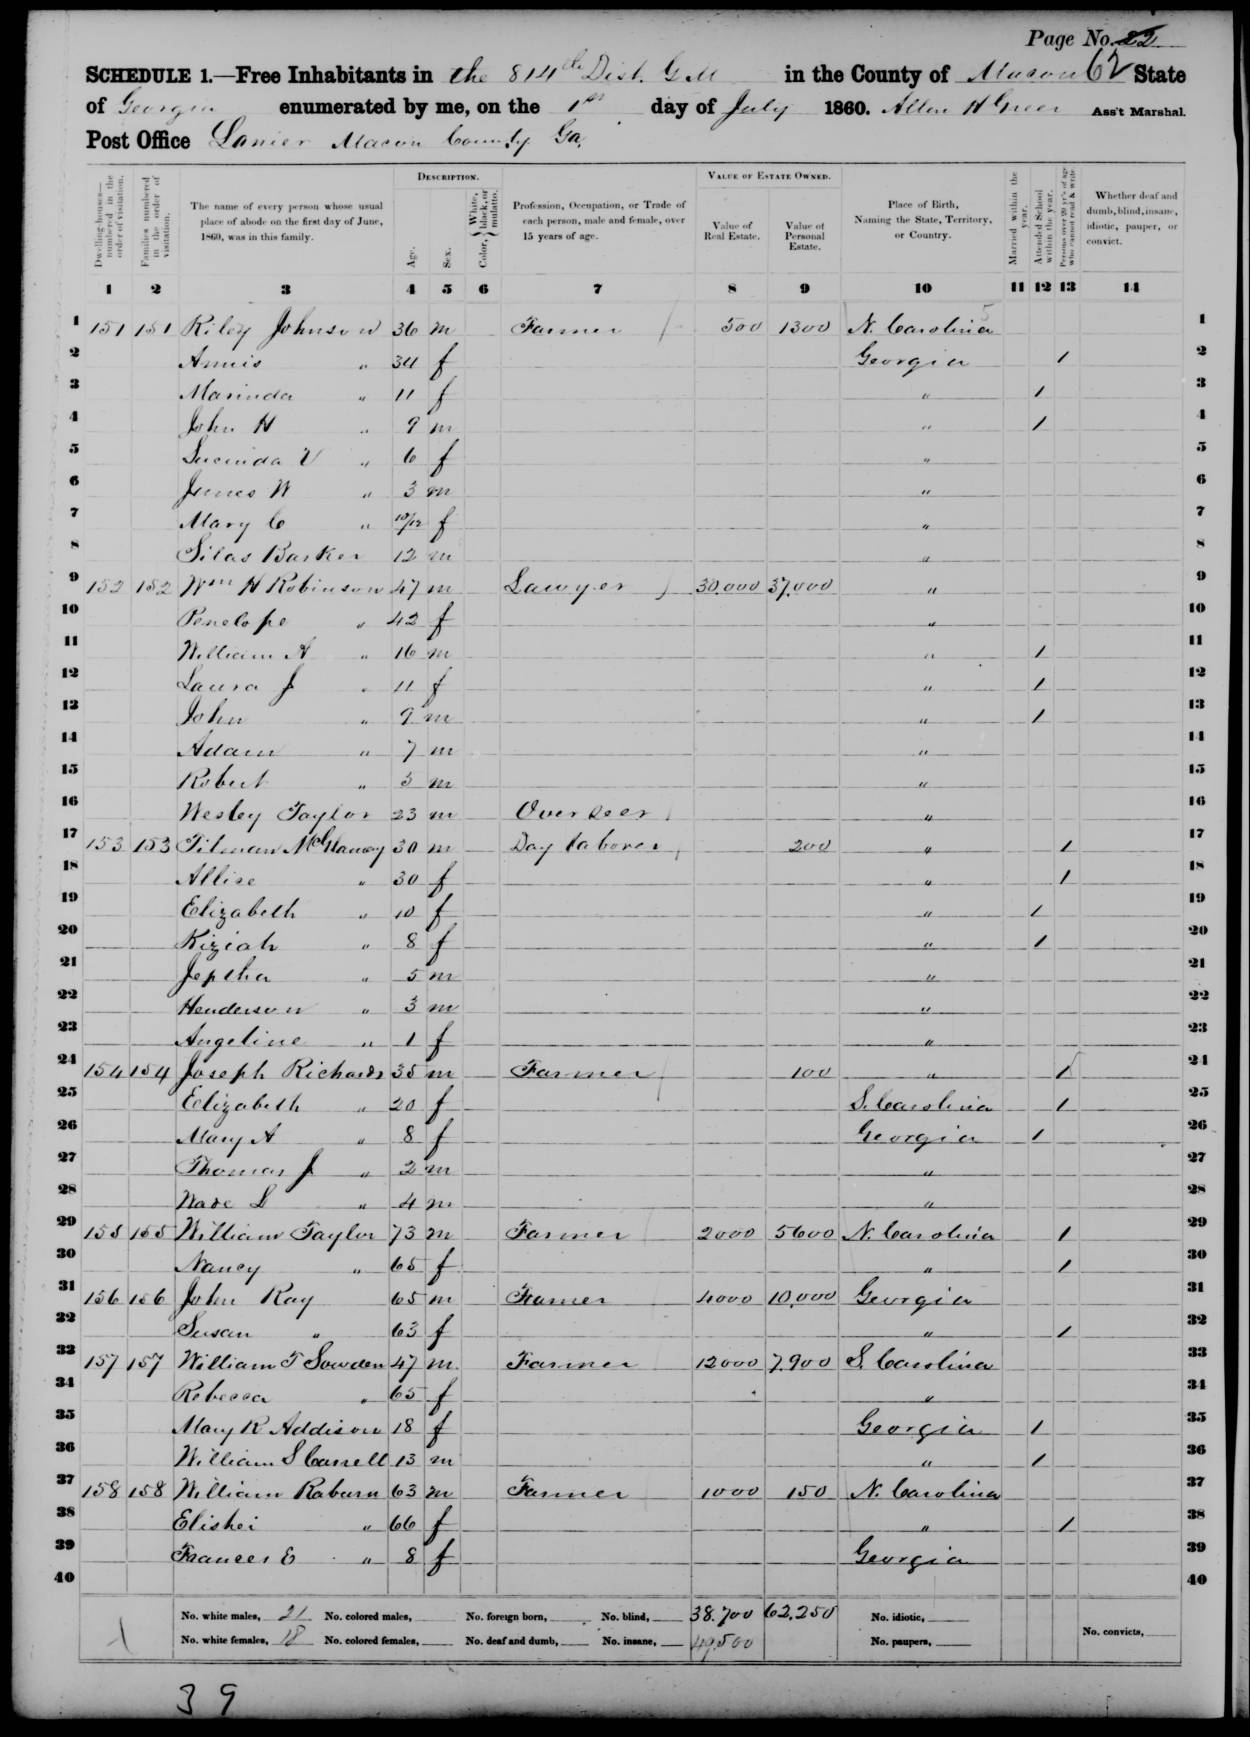 Page No. 22
62
SCHEDULE 1.—Free Inhabitants in the 814th Dist. G M in the County of Macon State
of Georgia enumerated by me, on the 1st day of July 1860. Allen H Greer Ass't Marshal.
Post Office Lanier Macon County Ga.
Dwelling-houses—numbered in the order of visitation.
Families numbered in the order of visitation.
The name of every person whose usual place of abode on the first day of June, 1860, was in this family.
DESCRIPTION.
Age.
Sex.
Color, { White, black, or mulatto.
Profession, Occupation, or Trade of each person, male and female, over 15 years of age.
VALUE OF ESTATE OWNED.
Value of Real Estate.
Value of Personal Estate.
Place of Birth, Naming the State, Territory, or Country.
Married within the year.
Attended School within the year.
Persons over 20 y'rs of age who cannot read & write
Whether deaf and dumb, blind, insane, idiotic, pauper, or convict.
1 2 3 4 5 6 7 8 9 10 11 12 13 14
1 151 151 Riley Johnson 36 m Farmer 500 1300 N. Carolina 1
2 Annis " 34 f Georgia / 2
3 Marinda " 11 f " / 3
4 John H " 9 m " / 4
5 Lucinda V " 6 f " 5
6 James W " 3 m " 6
7 Mary C " 10/12 f " 7
8 Silas Barker 12 m " 8
9 152 152 Wm H Robinson 47 m Lawyer 30.000 37.000 " 9
10 Penelope " 42 f " 10
11 William A " 16 m " / 11
12 Laura J " 11 f " / 12
13 John " 9 m " / 13
14 Adam " 7 m " 14
15 Robert " 3 m " 15
16 Wesley Taylor 23 m Overseer " 16
17 153 153 Tilman McGlamey 30 m Day laborer 200 " / 17
18 Allise " 30 f " / 18
19 Elizabeth " 10 f " / 19
20 Kiziah " 8 f " / 20
21 Jeptha " 5 m " 21
22 Henderson " 3 m " 22
23 Angeline " 1 f " 23
24 154 154 Joseph Richards 35 m Farmer 100 " / 24
25 Elizabeth " 20 f S. Carolina / 25
26 Mary A " 8 f Georgia / 26
27 Thomas J " 2 m " 27
28 " 4 m " 28
29 155 155 William Taylor 73 m Farmer 2000 5600 N. Carolina / 29
30 Nancy " 65 f " / 30
31 156 156 John Ray 65 m Framer 4000 10.000 Georgia 31
32 Susan " 63 f " / 32
33 157 157 William T Sowden 47 m Farmer 12000 7.900 S. Carolina 33
34 Rebecca " 65 f " 34
35 Mary R Addison 18 f Georgia / 35
36 William S 13 m " / 36
37 158 158 William Raburn 63 m Farmer 1000 150 N. Carolina 37
38 Elishei " 66 f " / 38
39 Frances E " 8 f Georgia 39
40 40
No. white males, 21 No. colored males, No. foreign born, No. blind, 38.700 62.250 No. idiotic,
No. white females, 18 No. colored females, No. deaf and dumb, No. insane, 49.500 No. paupers, No. convicts,
39